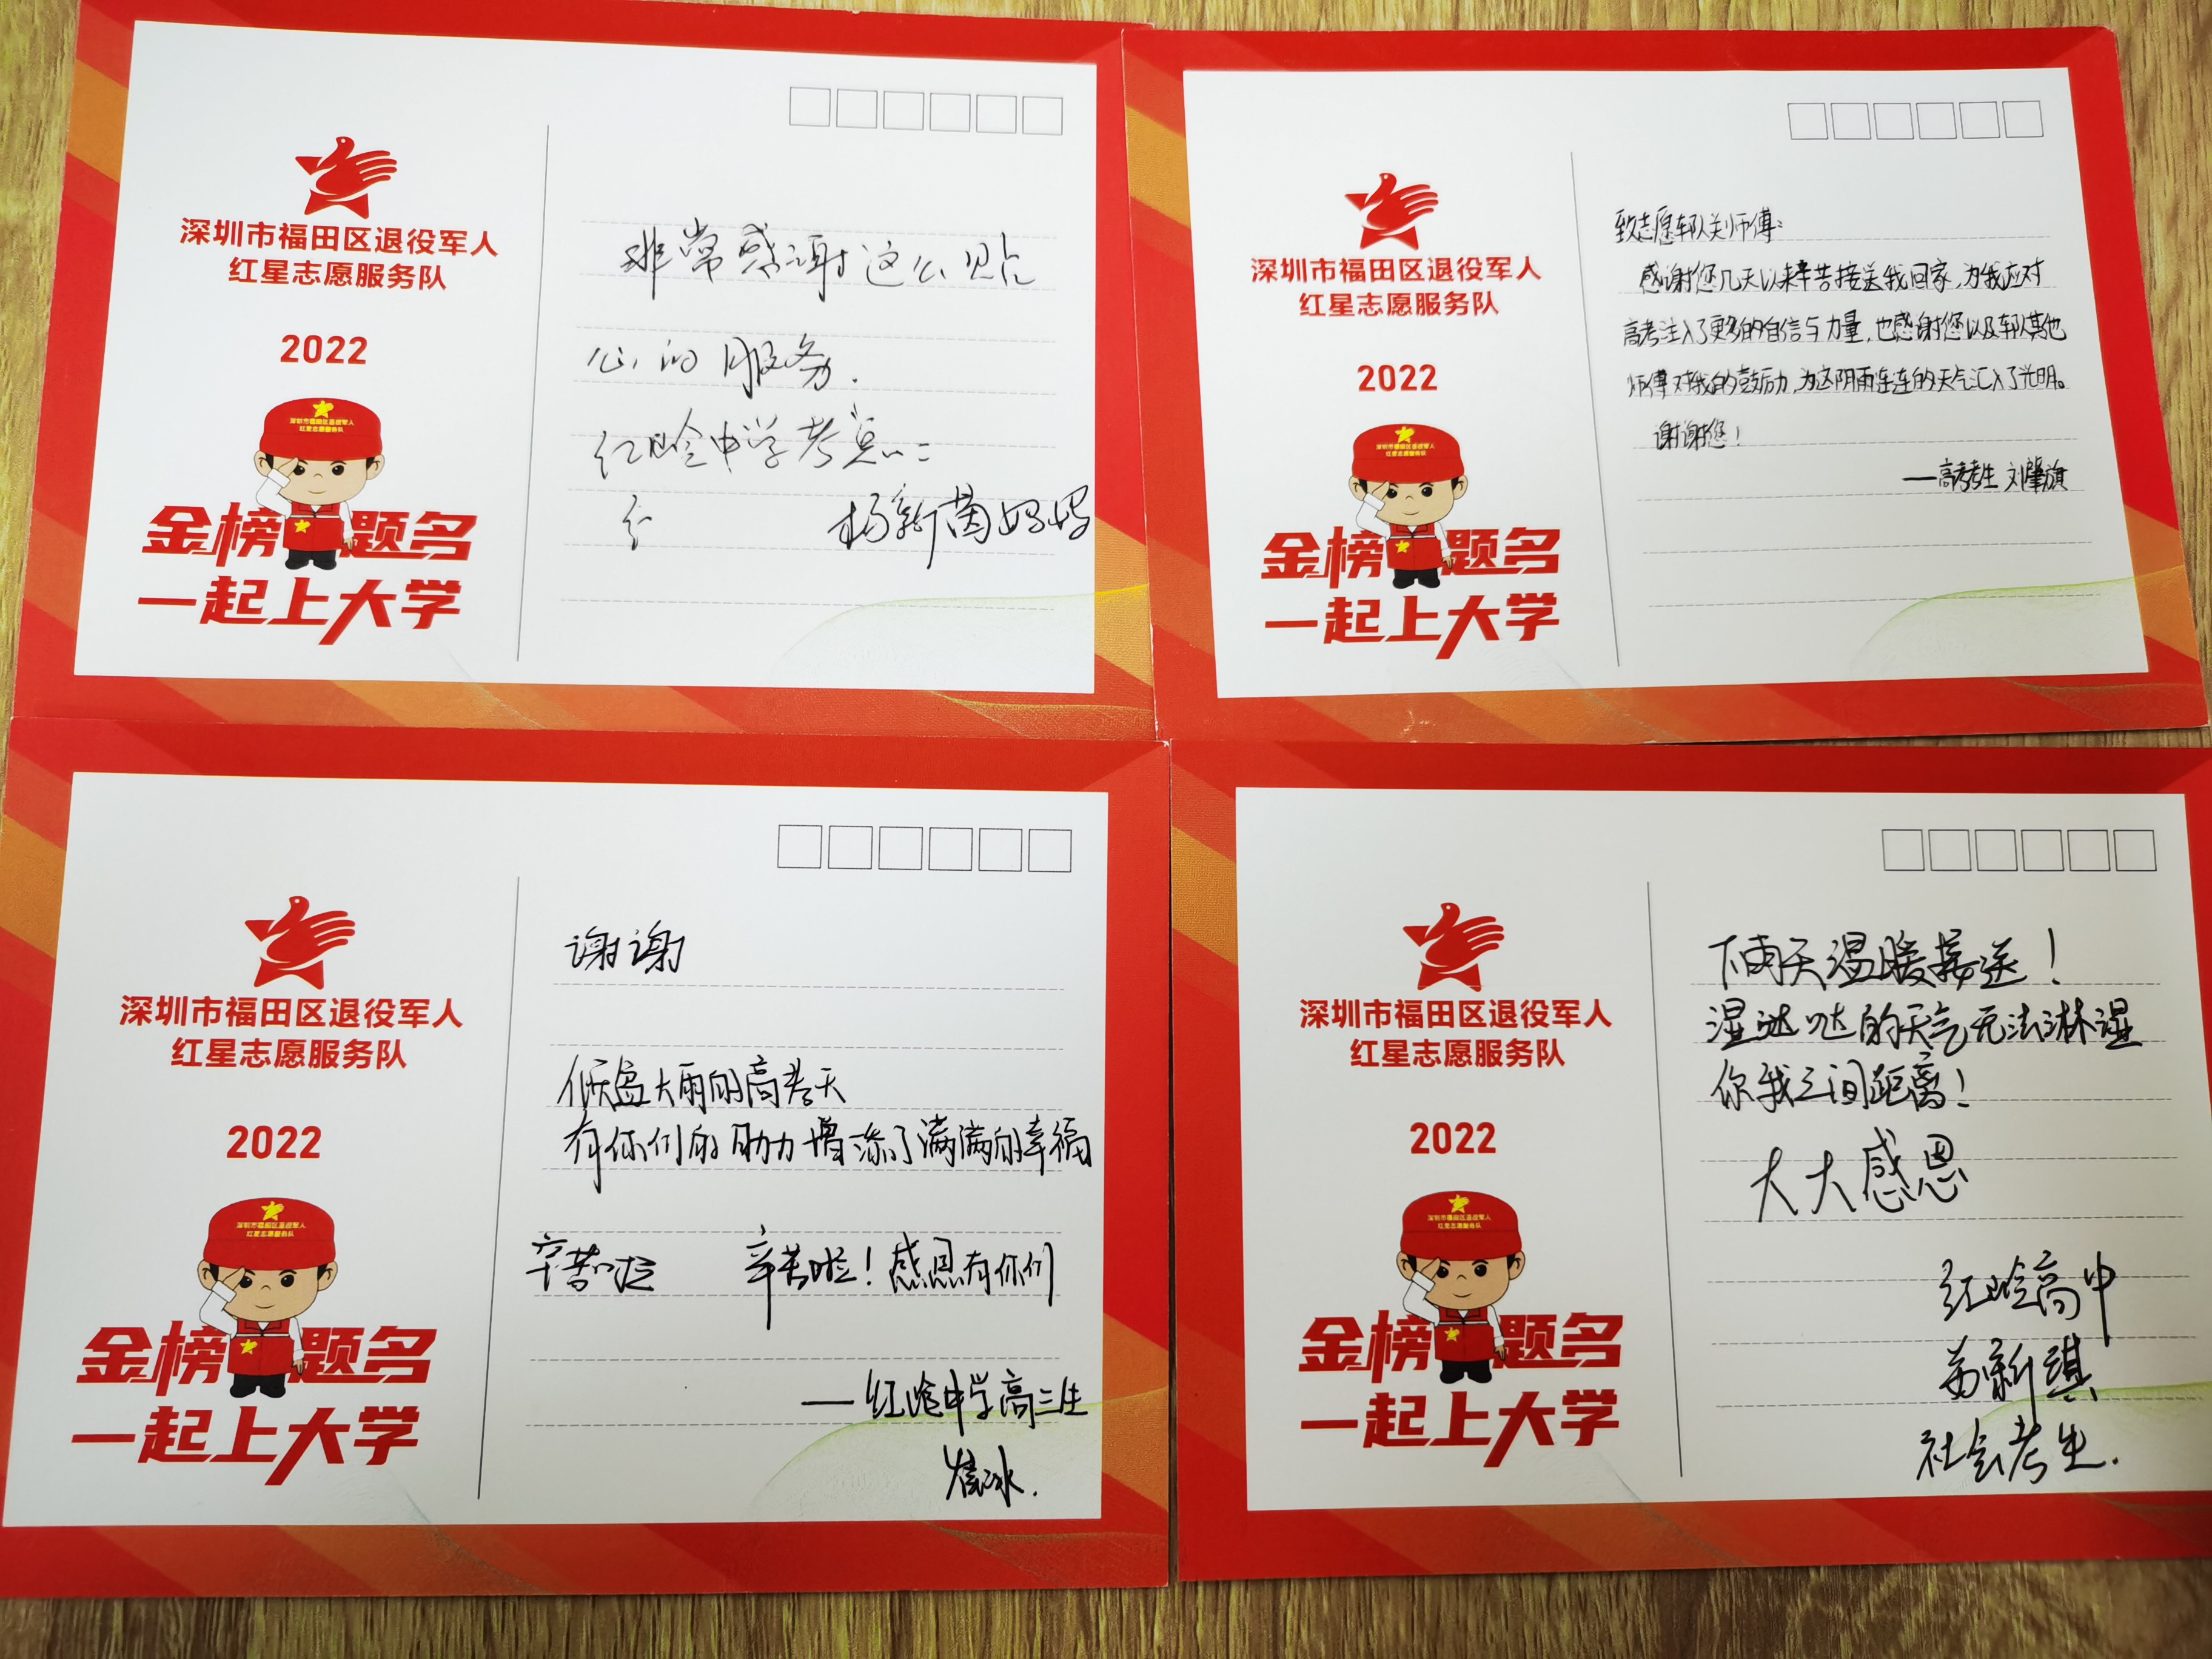 深圳市福田区退役军人
红星志愿服务队
2022
深圳市福田区退役军人
红星志愿服务队
金榜题名
一起上大学
非常感谢这么贴
心的服务.
红岭中学考点:
杨新茵妈妈
深圳市福田区退役军人
红星志愿服务队
2022
深圳市福田区退役军人
红星志愿服务队
金榜题名
一起上大学
致志愿车队关师傅:
感谢您几天以来辛苦接送我回家,为我应对
高考注入了更多的自信与力量,也感谢您以及车队其他
师傅对我的鼓励,为这阴雨连连的天气汇入了光明。
谢谢您!
——高考考生 刘肇旗
深圳市福田区退役军人
红星志愿服务队
2022
深圳市福田区退役军人
红星志愿服务队
金榜题名
一起上大学
谢谢
倾盆大雨的高考天
有你们的助力增添了满满的幸福
辛苦啦 辛苦啦!感恩有你们
——红岭中学高三生
深圳市福田区退役军人
红星志愿服务队
2022
深圳市福田区退役军人
红星志愿服务队
金榜题名
一起上大学
下雨天温暖接送!
湿哒哒的天气无法淋湿
你我之间距离!
大大感恩
红岭高中
新琪
社会考生.